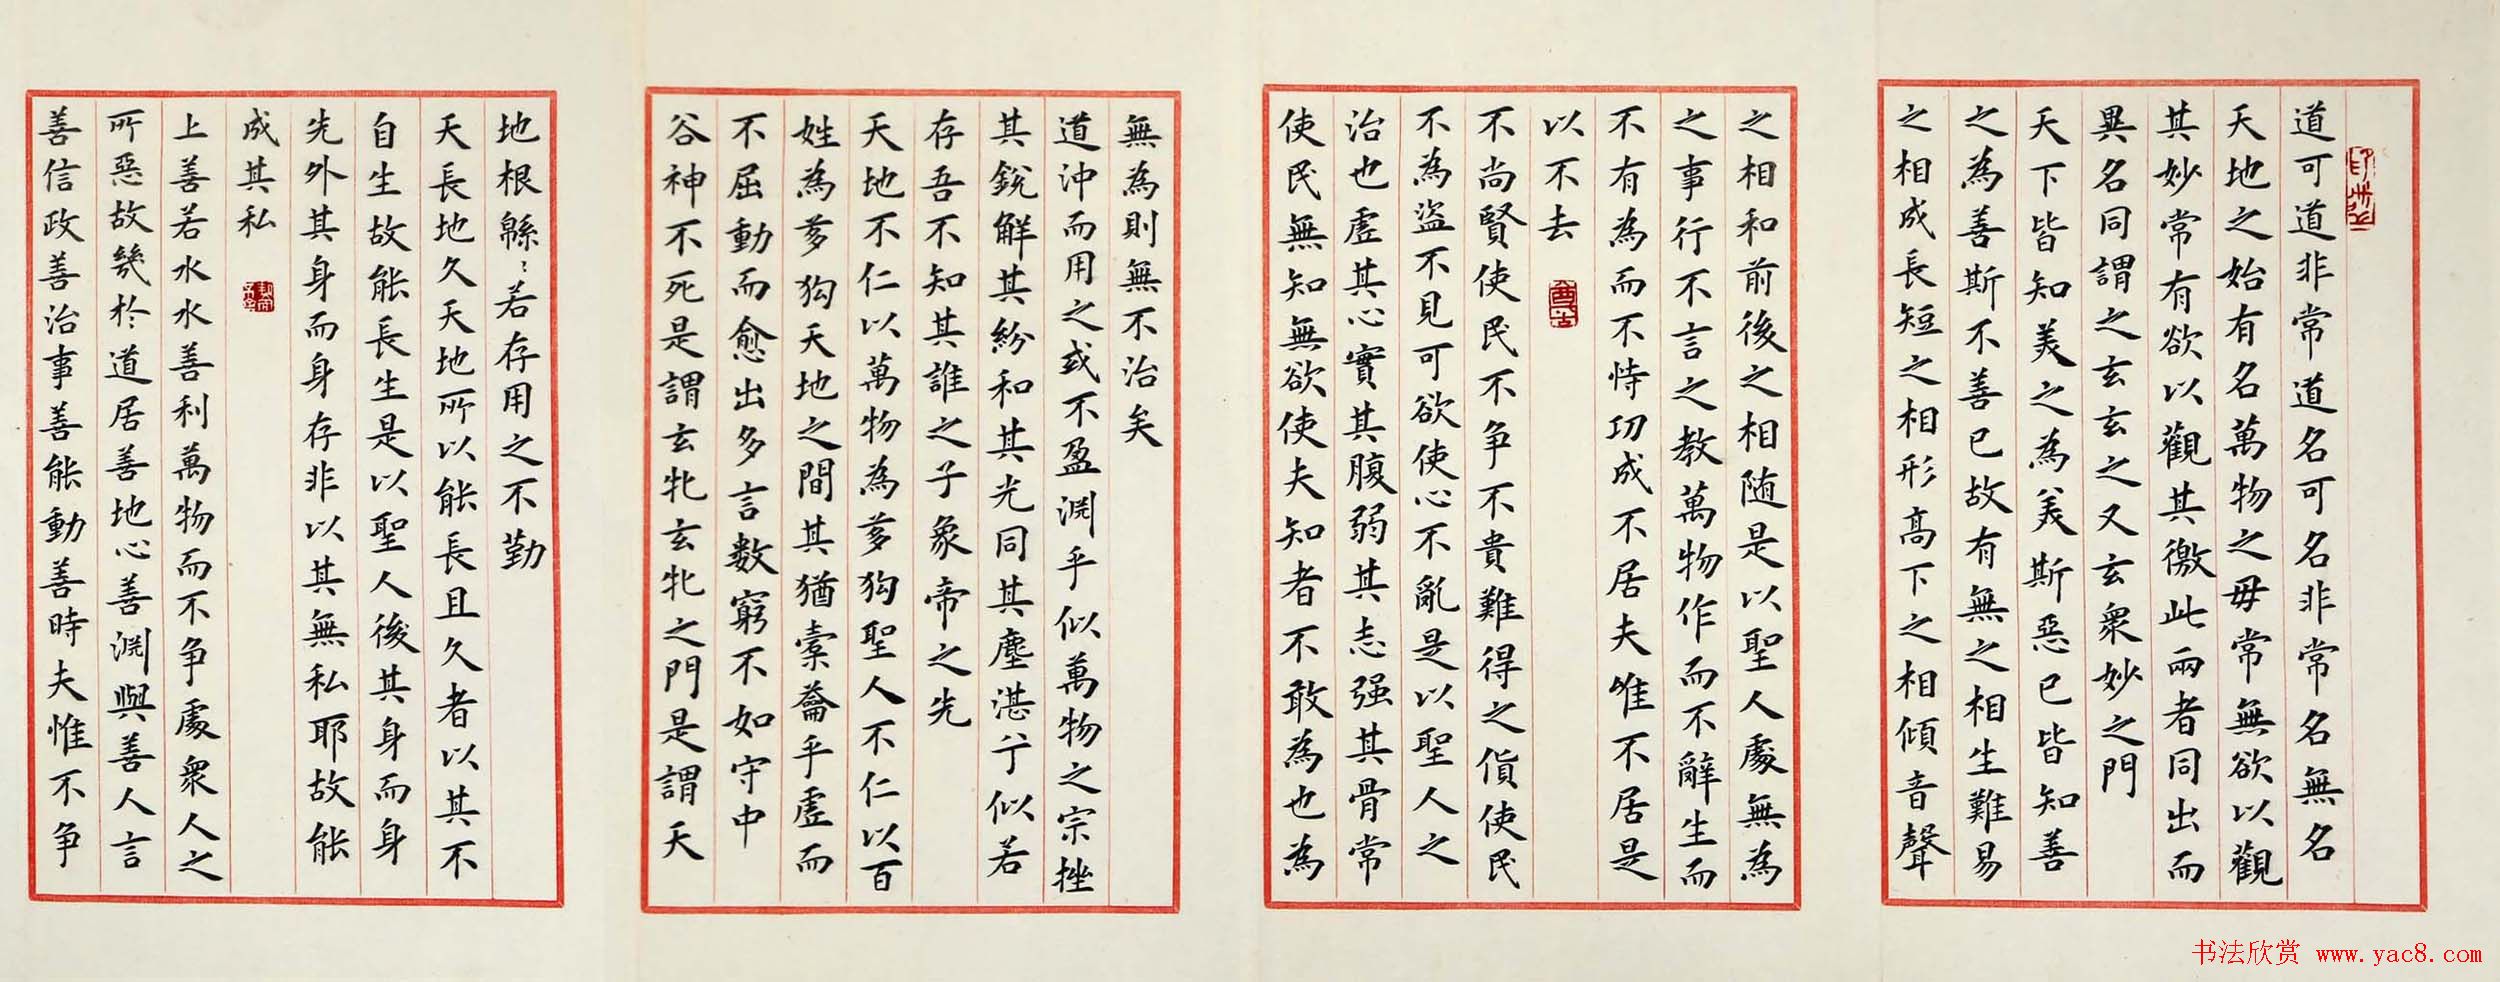 道可道非常道名可名非常名無名
天地之始有名萬物之毋常無欲以觀
其妙常有欲以觀其徼此兩者同出而
異名同謂之玄玄之又玄衆妙之門
天下皆知美之為美斯惡已皆知善
之為善斯不善已故有無之相生難易
之相成長短之相形高下之相傾音聲
之相和前後之相随是以聖人處無為
之事行不言之教萬物作而不辭生而
不有為而不恃功成不居夫唯不居是
以不去
不尚賢使民不争不貴難得之貨使民
不為盜不見可欲使心不亂是以聖人之
治也虛其心實其腹弱其志强其骨常
使民無知無欲使夫知者不敢為也為
無為則無不治矣
道沖而用之或不盈淵乎似萬物之宗挫
其銳解其紛和其光同其塵湛兮似若
存吾不知其誰之子象帝之先
天地不仁以萬物為芻狗聖人不仁以百
姓為芻狗天地之間其猶橐籥乎虛而
不屈動而愈出多言數窮不如守中
谷神不死是謂玄牝玄牝之門是謂天
地根緜〻若存用之不勤
天長地久天地所以能長且久者以其不
自生故能長生是以聖人後其身而身
先外其身而身存非以其無私耶故能
成其私
上善若水水善利萬物而不争處衆人之
所惡故幾於道居善地心善淵與善人言
善信政善治事善能動善時夫惟不争
书法欣赏 www.yac8.com